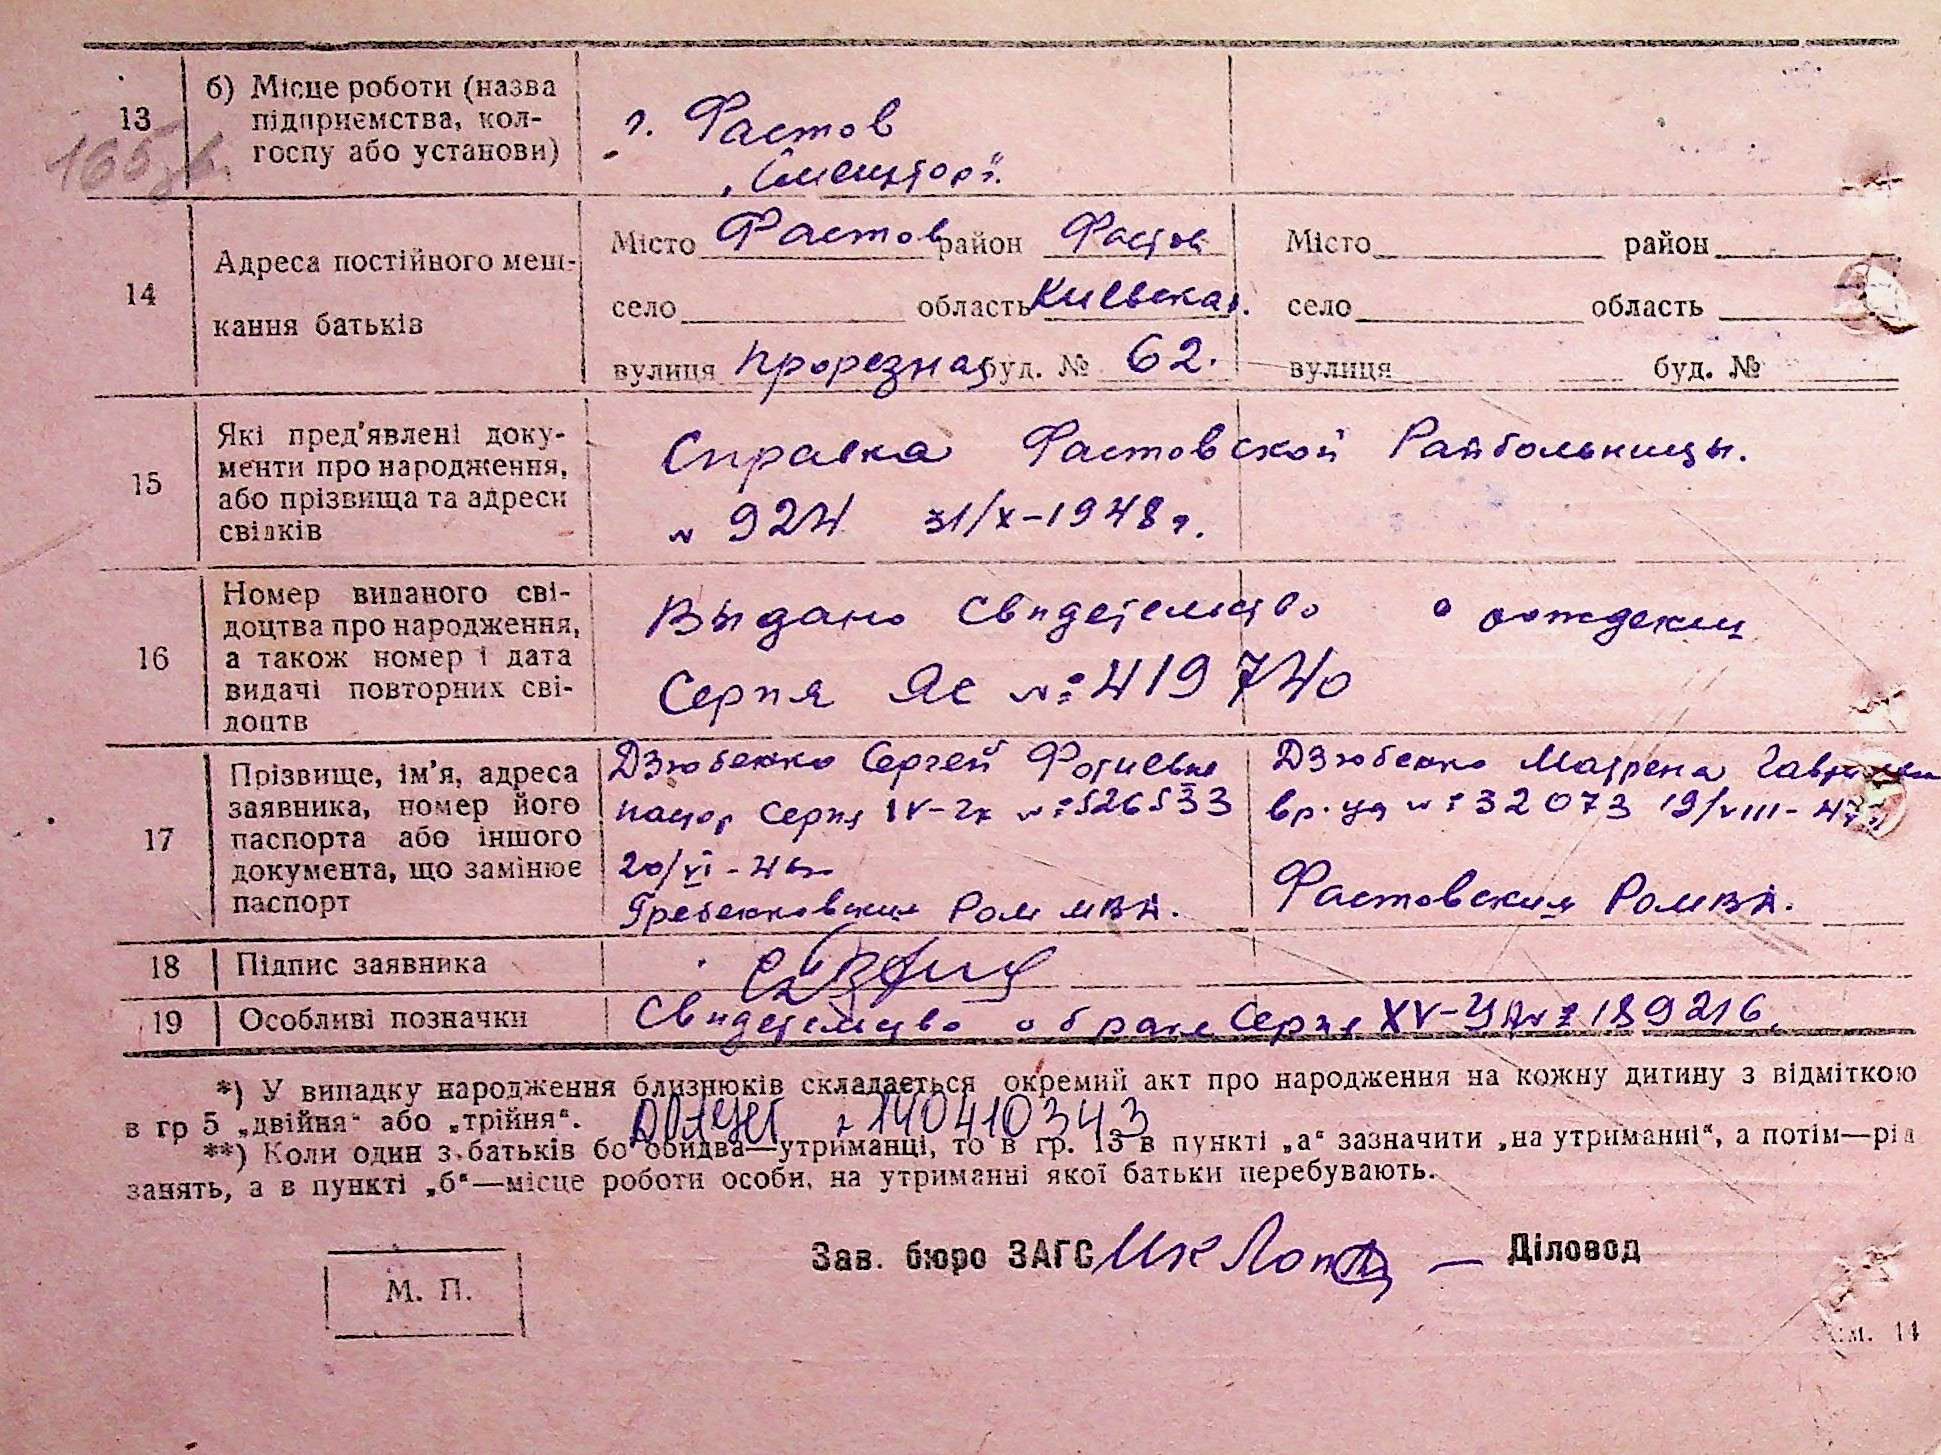 13 б) Місце роботи (назва
підприємства, кол-
госпу або установи)
165 зв.
г. Фастов
14 Адреса постійного меш-
кання батьків
Місто Фастов район Фастов
село область Киевская.
вулиця Прорезная буд. № 62.
Місто район
село область
вулиця буд. №
15 Які пред'явлені доку-
менти про народження,
або прізвища та адреси
свідків
Справка Фастовской Райбольницы.
№ 924 31/X-1948 г.
16 Номер виданого сві-
доцтва про народження,
а також номер і дата
видачі повторних сві-
доцтв
Выдано Свидетельство о рождении
Серия ЯС №: 419740
17 Прізвище, ім'я, адреса
заявника, номер його
паспорта або іншого
документа, що замінює
паспорт
Дзюбенко Сергей Фотиевич
Серия №: 526533
20/VI-46г
Гребенковским РОМ МВД.
Дзюбенко Матрена
вр. уд №: 32073 19/VIII-47г
Фастовским РОМВД.
18 Підпис заявника
19 Особливі позначки
Свидетельство о браке Серия XV-УД № 189216.
*) У випадку народження близнюків складається окремий акт про народження на кожну дитину з відміткою
в гр 5 „двійня“ або „трійня“.
140410343
**) Коли один з батьків бо обидва—утриманці, то в гр. 13 в пункті „а“ зазначити „на утриманні“, а потім—рід
занять, а в пункті „б“—місце роботи особи, на утриманні якої батьки перебувають.
Зав. бюро ЗАГС
Діловод
М. П.
14